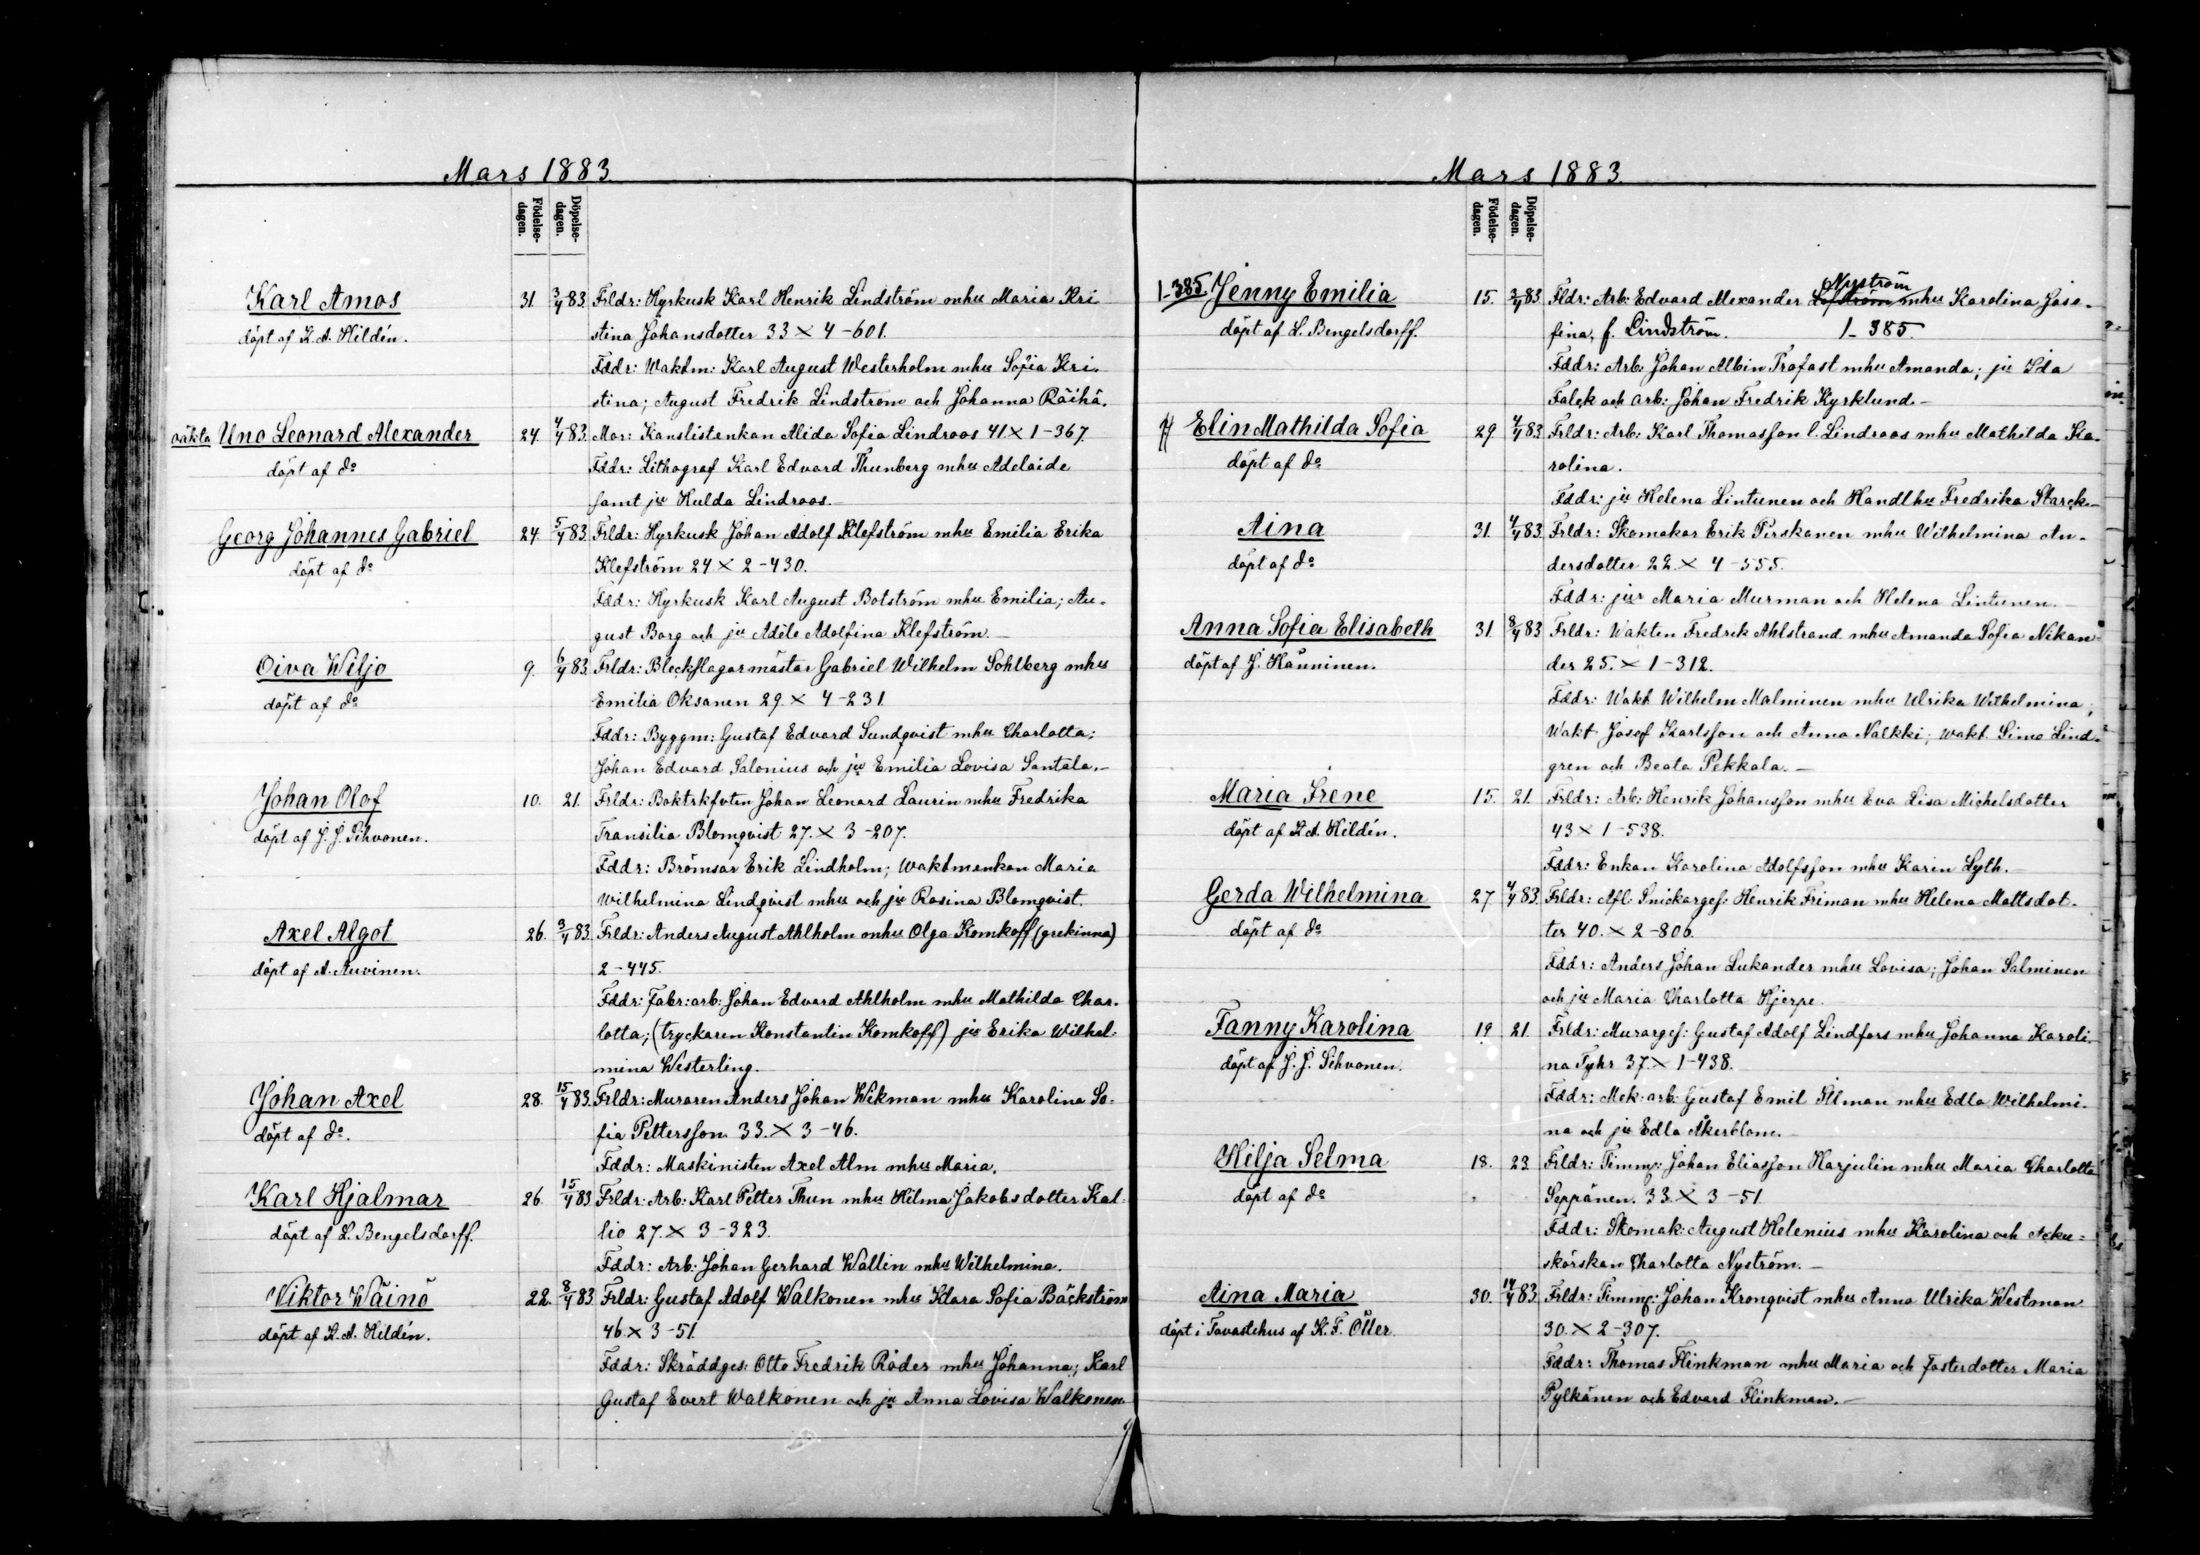 Mars 1883.
Födelse-dagen.
Döpelse-dagen.
Karl Amos 31. 3/4 83. Frldr: Hyrkusk Karl Henrik Lindström mhu Maria Kri
döpt af K. A. Hildén. stina Johansdotter 33 × 4-601.
Fddr: Waktm: Karl August Westerholm mhu Sofia Kri.
stina; August Fredrik Lindström och Johanna Räihä.
oäkta Uno Leonard Alexander 24. 4/4 83. Mor: Kanslistenkan Alida Sofia Lindroos 41 × 1-367.
döpt af do Fddr: Lithograf Karl Edvard Thunberg mhu Adelaide
samt ju Hulda Lindroos.
Georg Johannes Gabriel 24. 5/4 83. Frldr: Hyrkusk Johan Adolf Klefström mhu Emilia Erika
döpt af do Klefström 24 × 2-430.
Fddr: Hyrkusk Karl August Botström mhu Emilia; Au-
gust Borg och ju Adéle Adolfina Klefström.
Oiva Wiljo 9. 6/4 83. Frldr: Bleckslagarmästar Gabriel Wilhelm Sohlberg mhu
döpt af do Emilia Oksanen 29. × 4-231.
Fddr: Byggm: Gustaf Edvard Sundqvist mhu Charlotta;
Johan Edvard Salonius och ju Emilia Lovisa Santala.
Johan Olof 10. 21. Frldr: Boktrkfvten Johan Leonard Laurin mhu Fredrika
döpt af J. J. Sihvonen. Transilia Blomqvist 27. × 3-207.
Fddr: Brömsar Erik Lindholm; waktmenkan Maria
Wilhelmina Lindqvist mhu och ju Rosina Blomqvist.
Axel Algot 26. 3/4 83. Frldr: Anders August Ahlholm mhu Olga Komkoff (grekinna)
döpt af A. Auvinen. 2-445.
Fddr: Fabr: arb: Johan Edvard Ahlholm mhu Mathilda Char-
lotta; (tryckaren Konstantin Komkoff) ju Erika Wilhel-
mina Westerling.
Johan Axel 28. 15/4 83. Frldr: Muraren Anders Johan Wikman mhu Karolina So-
döpt af do. fia Pettersson 33. × 3-46.
Fddr: Maskinisten Axel Alm mhu Maria.
Karl Hjalmar 26. 15/4 83 Frldr: Arb: Karl Petter Thun mhu Hilma Jakobsdotter Kal-
döpt af L. Bengelsdorff. lio 27. × 3-323.
Fddr: Arb: Johan Gerhard Wallin mhu Wilhelmina.
Viktor Wäinö 22. 8/4 83. Frldr: Gustaf Adolf Walkonen mhu Klara Sofia Bäckström
döpt af K. A. Hildén. 46 × 3-51.
Fddr: Skräddges: Otto Fredrik Röder mhu Johanna; Karl
Gustaf Evert Walkonen och ju Anna Lovisa Walkonen
Mars 1883.
Födelse-dagen.
Döpelse-dagen.
Nyström
1-385 Jenny Emilia 15. 3/4 83. Fldr: Arb: Edvard Alexander Löfström mhu Karolina Jose-
döpt af L. Bengelsdorff. fina, f. Lindström. 1-385.
Fddr: Arb: Johan Albin Trofast mhu Amanda; ju Ida
Falck och arb: Johan Fredrik Kyrklund.
Elin Mathilda Sofia 29. 4/4 83. Frldr: Arb: Karl Thomasson l. Lindroos mhu Mathilda Ka-
döpt af do rolina.
Fddr: ju Helena Lintunen och Handlhu Fredrika Starck.
Aina 31. 4/4 83. Frldr: Skomakar Erik Pirskanen mhu Wilhelmina An-
döpt af do dersdotter 22. × 4-555.
Fddr: jur Maria Murman och Helena Lintunen.
Anna Sofia Elisabeth 31. 8/4 83 Frldr: Wakten Fredrik Ahlstrand mhu Amanda Sofia Nikan-
döpt af J. Hänninen. der 25. × 1-312.
Fddr: Wakt Wilhelm Malminen mhu Ulrika Wilhelmina;
Wakt Josef Karlsson och Anna Nalkki; wakt Simo Lind-
gren och Beata Pekkala.
Maria Irene 15. 21. Frldr: Arb: Henrik Johansson mhu Eva Lisa Michelsdotter
döpt af K. A. Hildén. 43 × 1-538.
Fddr: Enkan Karolina Adolfsson mhu Karin Lyth.
Gerda Wilhelmina 27 4/4 83. Frldr: Afl. Snickarges: Henrik Friman mhu Helena Mattsdot-
döpt af do ter 40. × 2-806.
Fddr: Anders Johan Lukander mhu Lovisa; Johan Salminen
och ju Maria Charlotta Hjerpe.
Fanny Karolina 19. 21. Frldr: Murarges: Gustaf Adolf Lindfors mhu Johanna Karoli-
döpt af J. J. Sihvonen. na Tyhr 37. × 1-438.
Fddr: Mek: arb: Gustaf Emil Silman mhu Edla Wilhelmi-
na och ju Edla Åkerblom.
Hilja Selma 18. 23. Frldr: Timmg: Johan Eliasson Harjulin mhu Maria Charlotta
döpt af do Seppänen. 33. × 3-51.
Fddr: Skomak: August Helenius mhu Karolina och Acku-
skörskan Charlotta Nyström.
Aina Maria 30. 14/4 83. Frldr: Timmg: Johan Kronqvist mhu Anna Ulrika Westman
döpt i Tavastehus af K. F. Öller. 30. × 2-307.
Fddr: Thomas Flinkman mhu Maria och fosterdotter Maria
Pylkänen och Edvard Flinkman.